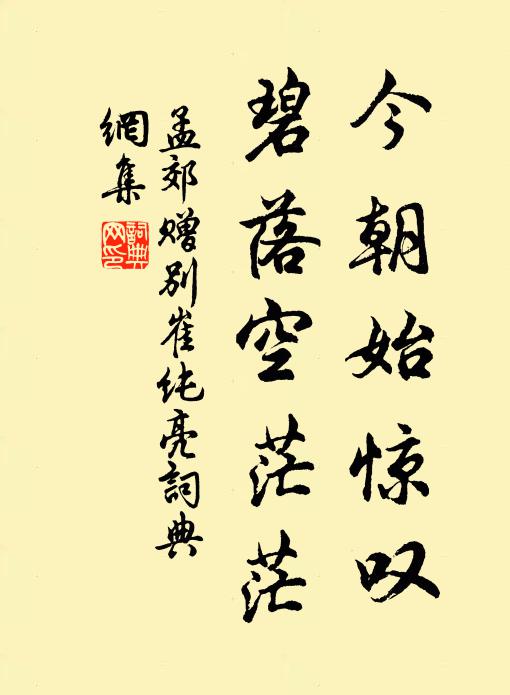 今朝始惊叹
碧落空茫茫
孟郊赠别崔纯亮詞典
網集
詞典
网印